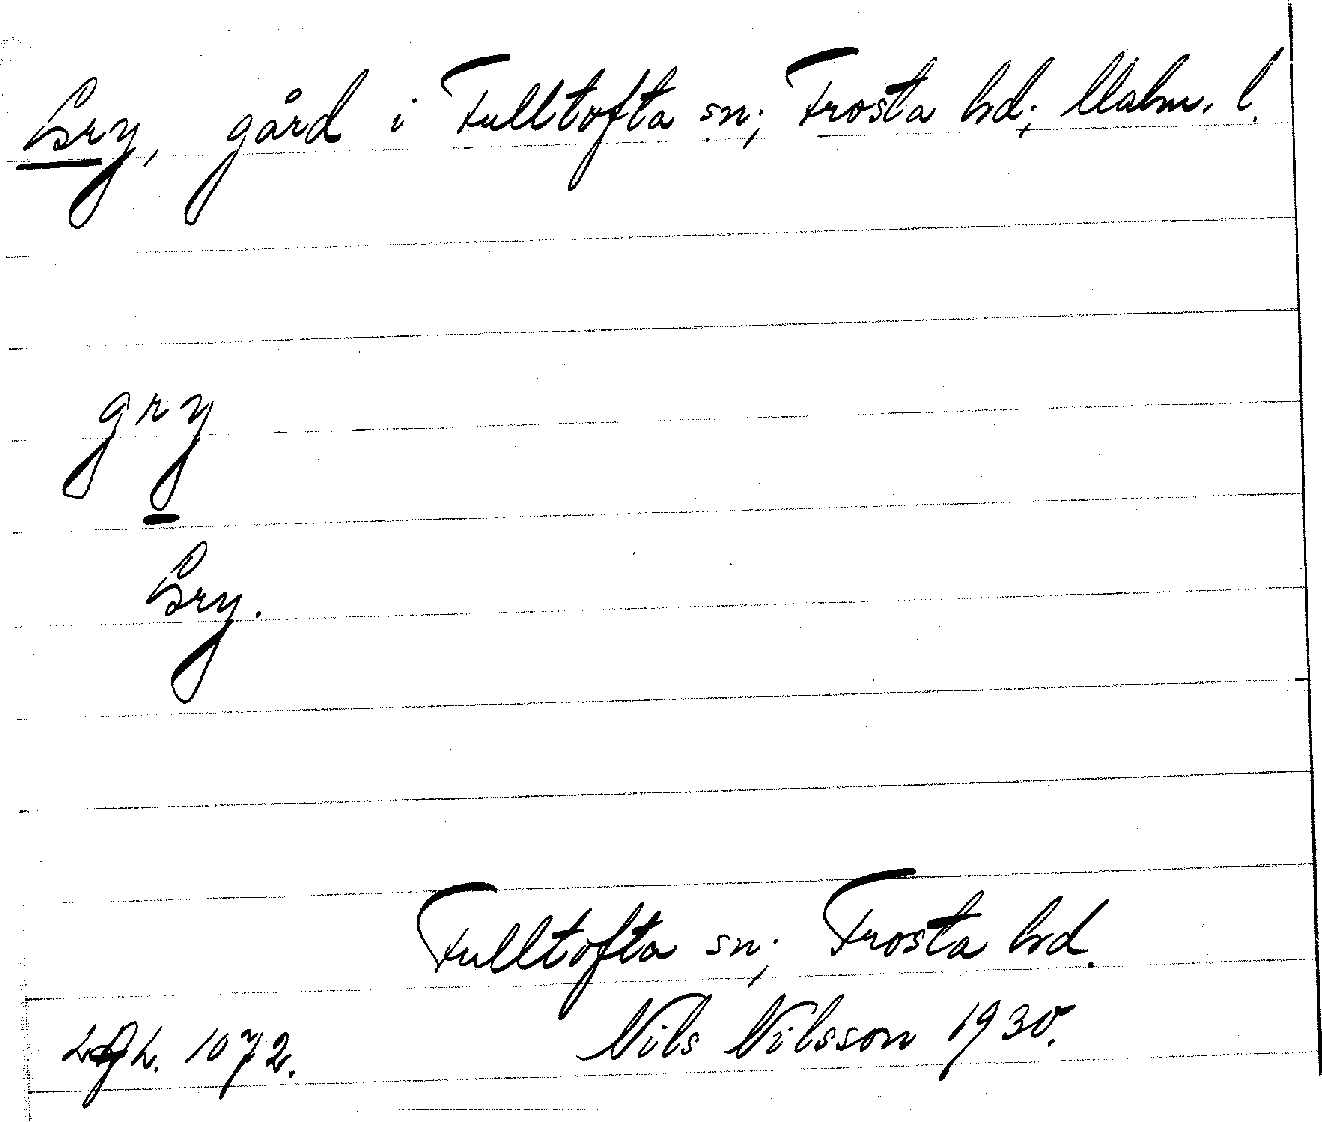 Gry, gård i Fulltofta sn; Frosta hd; Malm. l.
gry
Gry.
Fulltofta sn; Frosta hd.
1072. Nils Nilsson 1930.